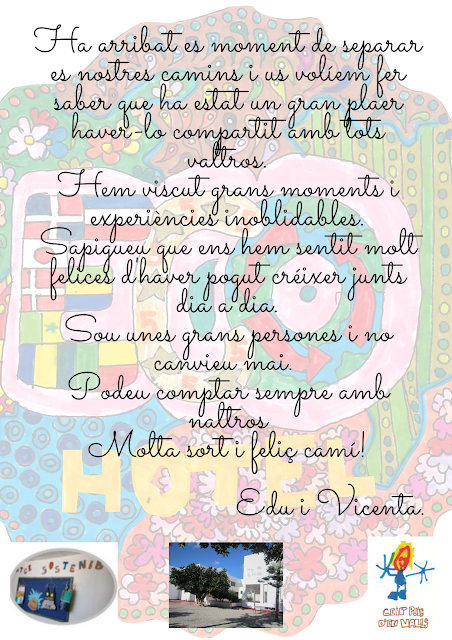 Ha arribat es moment de separar
es nostres camins i us volíem fer
saber que ha estat un gran plaer
haver-lo compartit amb tots
valtros.
Hem viscut grans moments i
experiències inoblidables.
Sapigueu que ens hem sentit molt
felices d'haver pogut créixer junts
dia a dia.
Sou unes grans persones i no
canvieu mai.
Podeu comptar sempre amb
naltros
Molta sort i feliç camí!
HOTEL
Edu i Vicenta.
SOSTENIB
CEIP PUIG
D'EN VALLS